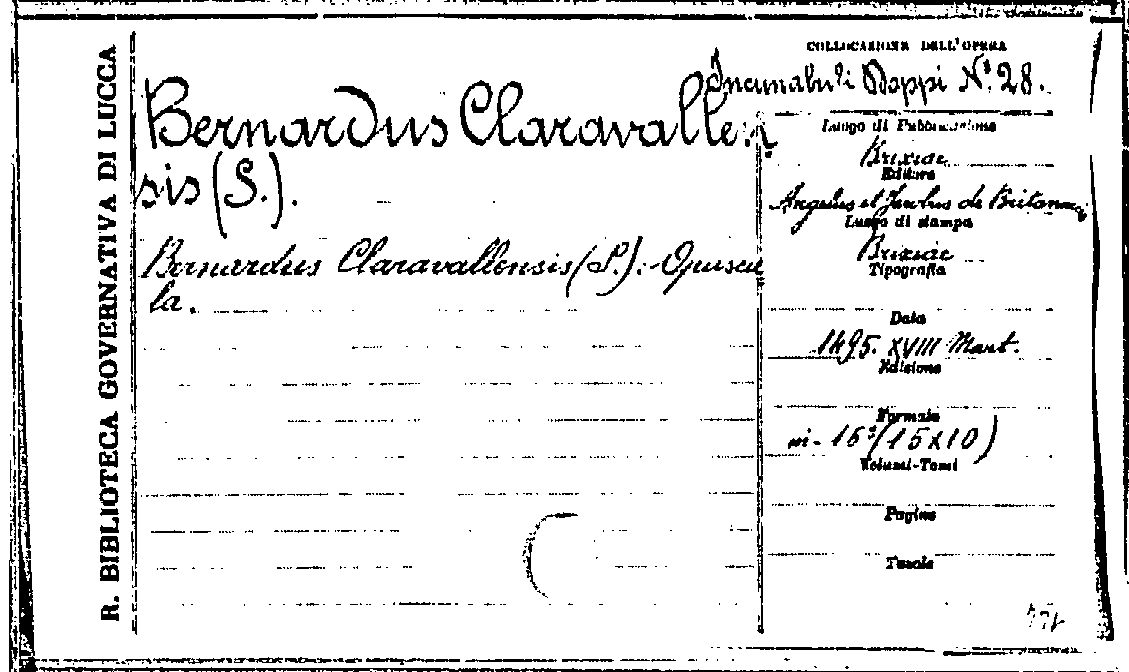 R. BIBLIOTECA GOVERNATIVA DI LUCCA
Bernardus Claravallen
sis (S.).
Bernardus Claravallensis (S.): Opuscu
la.
COLLOCAZIONE DELL'OPERA
Incunabuli Doppi N.º 28.
Luogo di Pubblicazione
Brixiae
Editore
Angelus et Jacobus de Britannic
Luogo di stampa
Brixiae
Tipografia
Data
1495. XVIII Mart.
Edizione
Formato
in-16º (15x10)
Volumi-Tomi
Pagine
Tavole